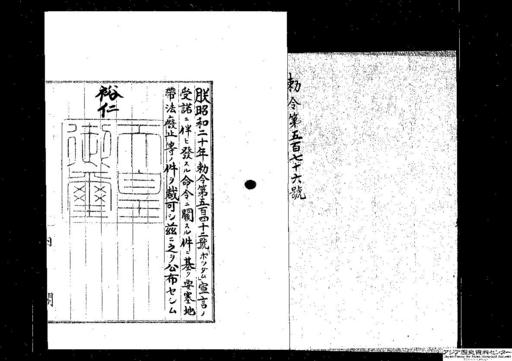 勅令第五百七十六號
朕昭和二十年勅令第五百四十二號「ポツダム」宣言ノ
受諾ニ伴ヒ發スル命令ニ關スル件ニ基ク要塞地
帶法廢止等ノ件ヲ裁可シ茲ニ之ヲ公布セシム
裕仁
天皇御璽
内閣
アジア歴史資料センター